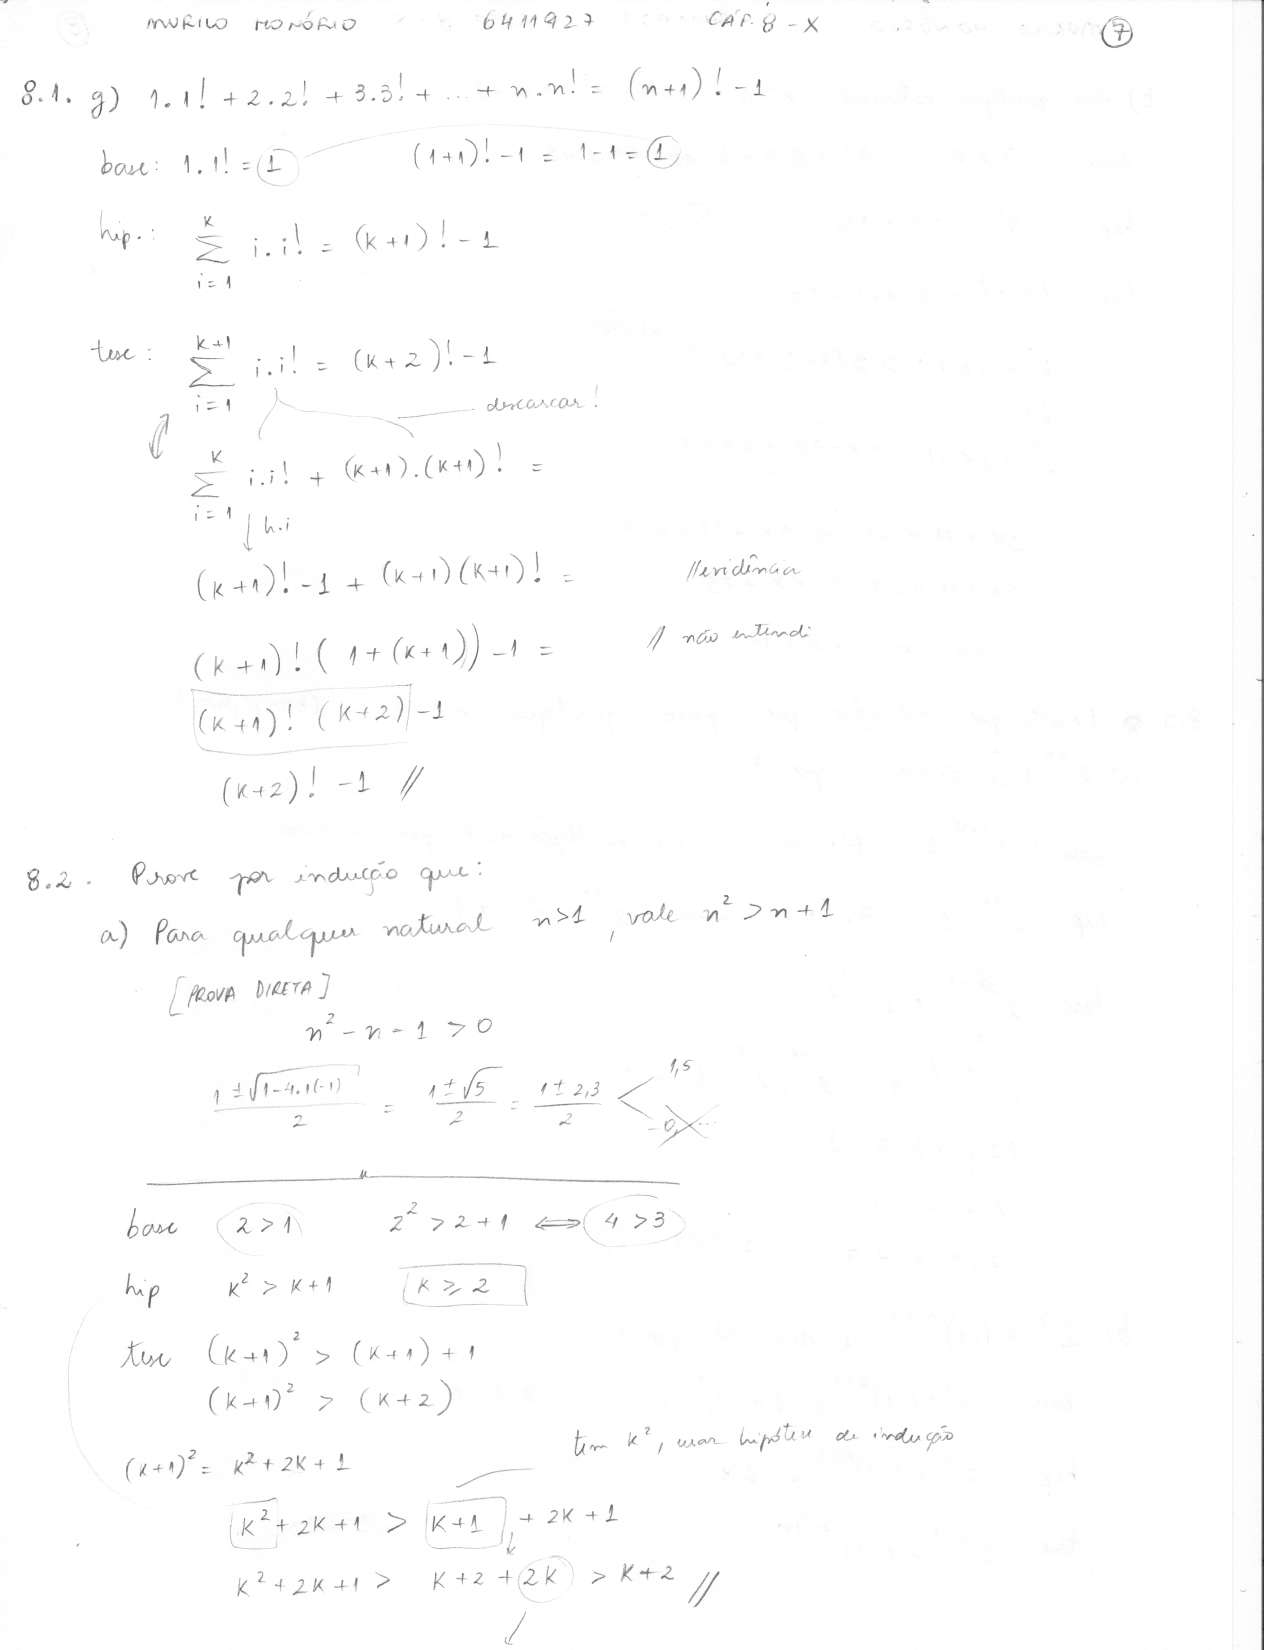 MURILO HONÓRIO 6411927 CAP. 8 - X 7
8.1. g) 1.1! + 2.2! + 3.3! + ... + n.n! = (n+1)! - 1
base: 1.1! = 1 (1+1)! - 1 = 1-1 = 1
hip.: \sum_{i=1}^{k} i.i! = (k+1)! - 1
tese: \sum_{i=1}^{k+1} i.i! = (k+2)! - 1
descascar!
\sum_{i=1}^{k} i.i! + (k+1).(k+1)! =
↓ h.i
(k+1)! - 1 + (k+1)(k+1)! = //evidência
(k+1)! (1+(k+1)) - 1 = // não entendi
(k+1)! (k+2) - 1
(k+2)! - 1 //
8.2. Prove por indução que:
a) Para qualquer natural n>1, vale n² > n+1
[PROVA DIRETA]
n² - n - 1 > 0
\frac{1 ± √(1-4.1(-1)}{2} = \frac{1 ± √5}{2} = \frac{1 ± 2,3}{2} < 1,5
base 2 > 1 2² > 2+1 ⟺ 4 > 3
hip k² > k+1 k ≥ 2
tese (k+1)² > (k+1) + 1
(k+1)² > (k+2)
tem k², usar hipótese de indução
(k+1)² = k² + 2k + 1
k² + 2k + 1 > k+1 + 2k + 1
k² + 2k + 1 > k+2 + 2k > k+2 //